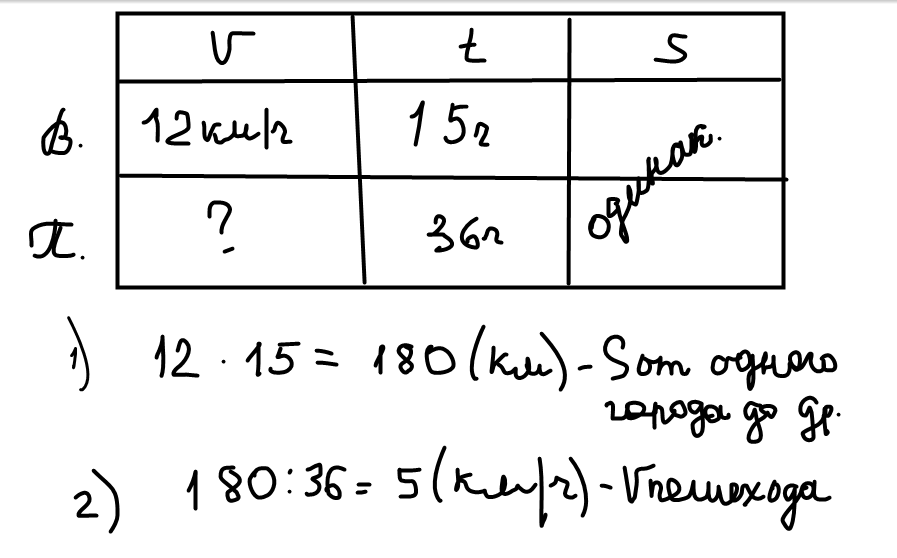 V t S
В. 12км/ч 15ч
П. ? 36ч одинак.
1) 12 · 15 = 180 (км) - S от одного
города до др.
2) 180 : 36 = 5 (км/ч) - V пешехода